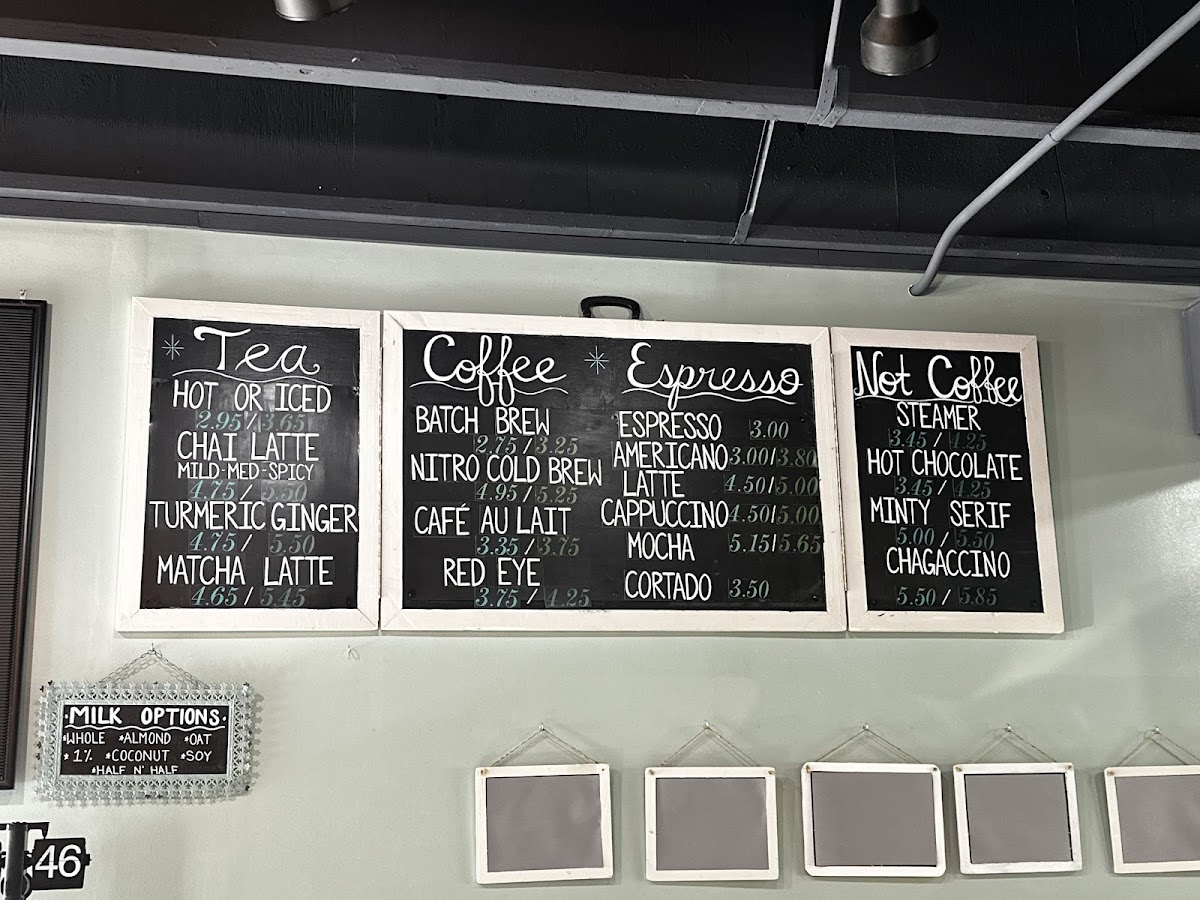 Tea
HOT OR ICED
2.95/3.65
CHAI LATTE
MILD-MED-SPICY
4.75/5.50
TURMERIC GINGER
4.75/5.50
MATCHA LATTE
4.65/5.45
Coffee
BATCH BREW
2.75/3.25
NITRO COLD BREW
4.95/5.25
CAFÉ AU LAIT
3.35/3.75
RED EYE
3.75/4.25
Espresso
ESPRESSO 3.00
AMERICANO 3.00/3.80
LATTE 4.50/5.00
CAPPUCCINO 4.50/5.00
MOCHA 5.15/5.65
CORTADO 3.50
Not Coffee
STEAMER
3.45/4.25
HOT CHOCOLATE
3.45/4.25
MINTY SERIF
5.00/5.50
CHAGACCINO
5.50/5.85
·MILK OPTIONS·
*WHOLE *ALMOND *OAT
*1% *COCONUT *SOY
*HALF N' HALF
46